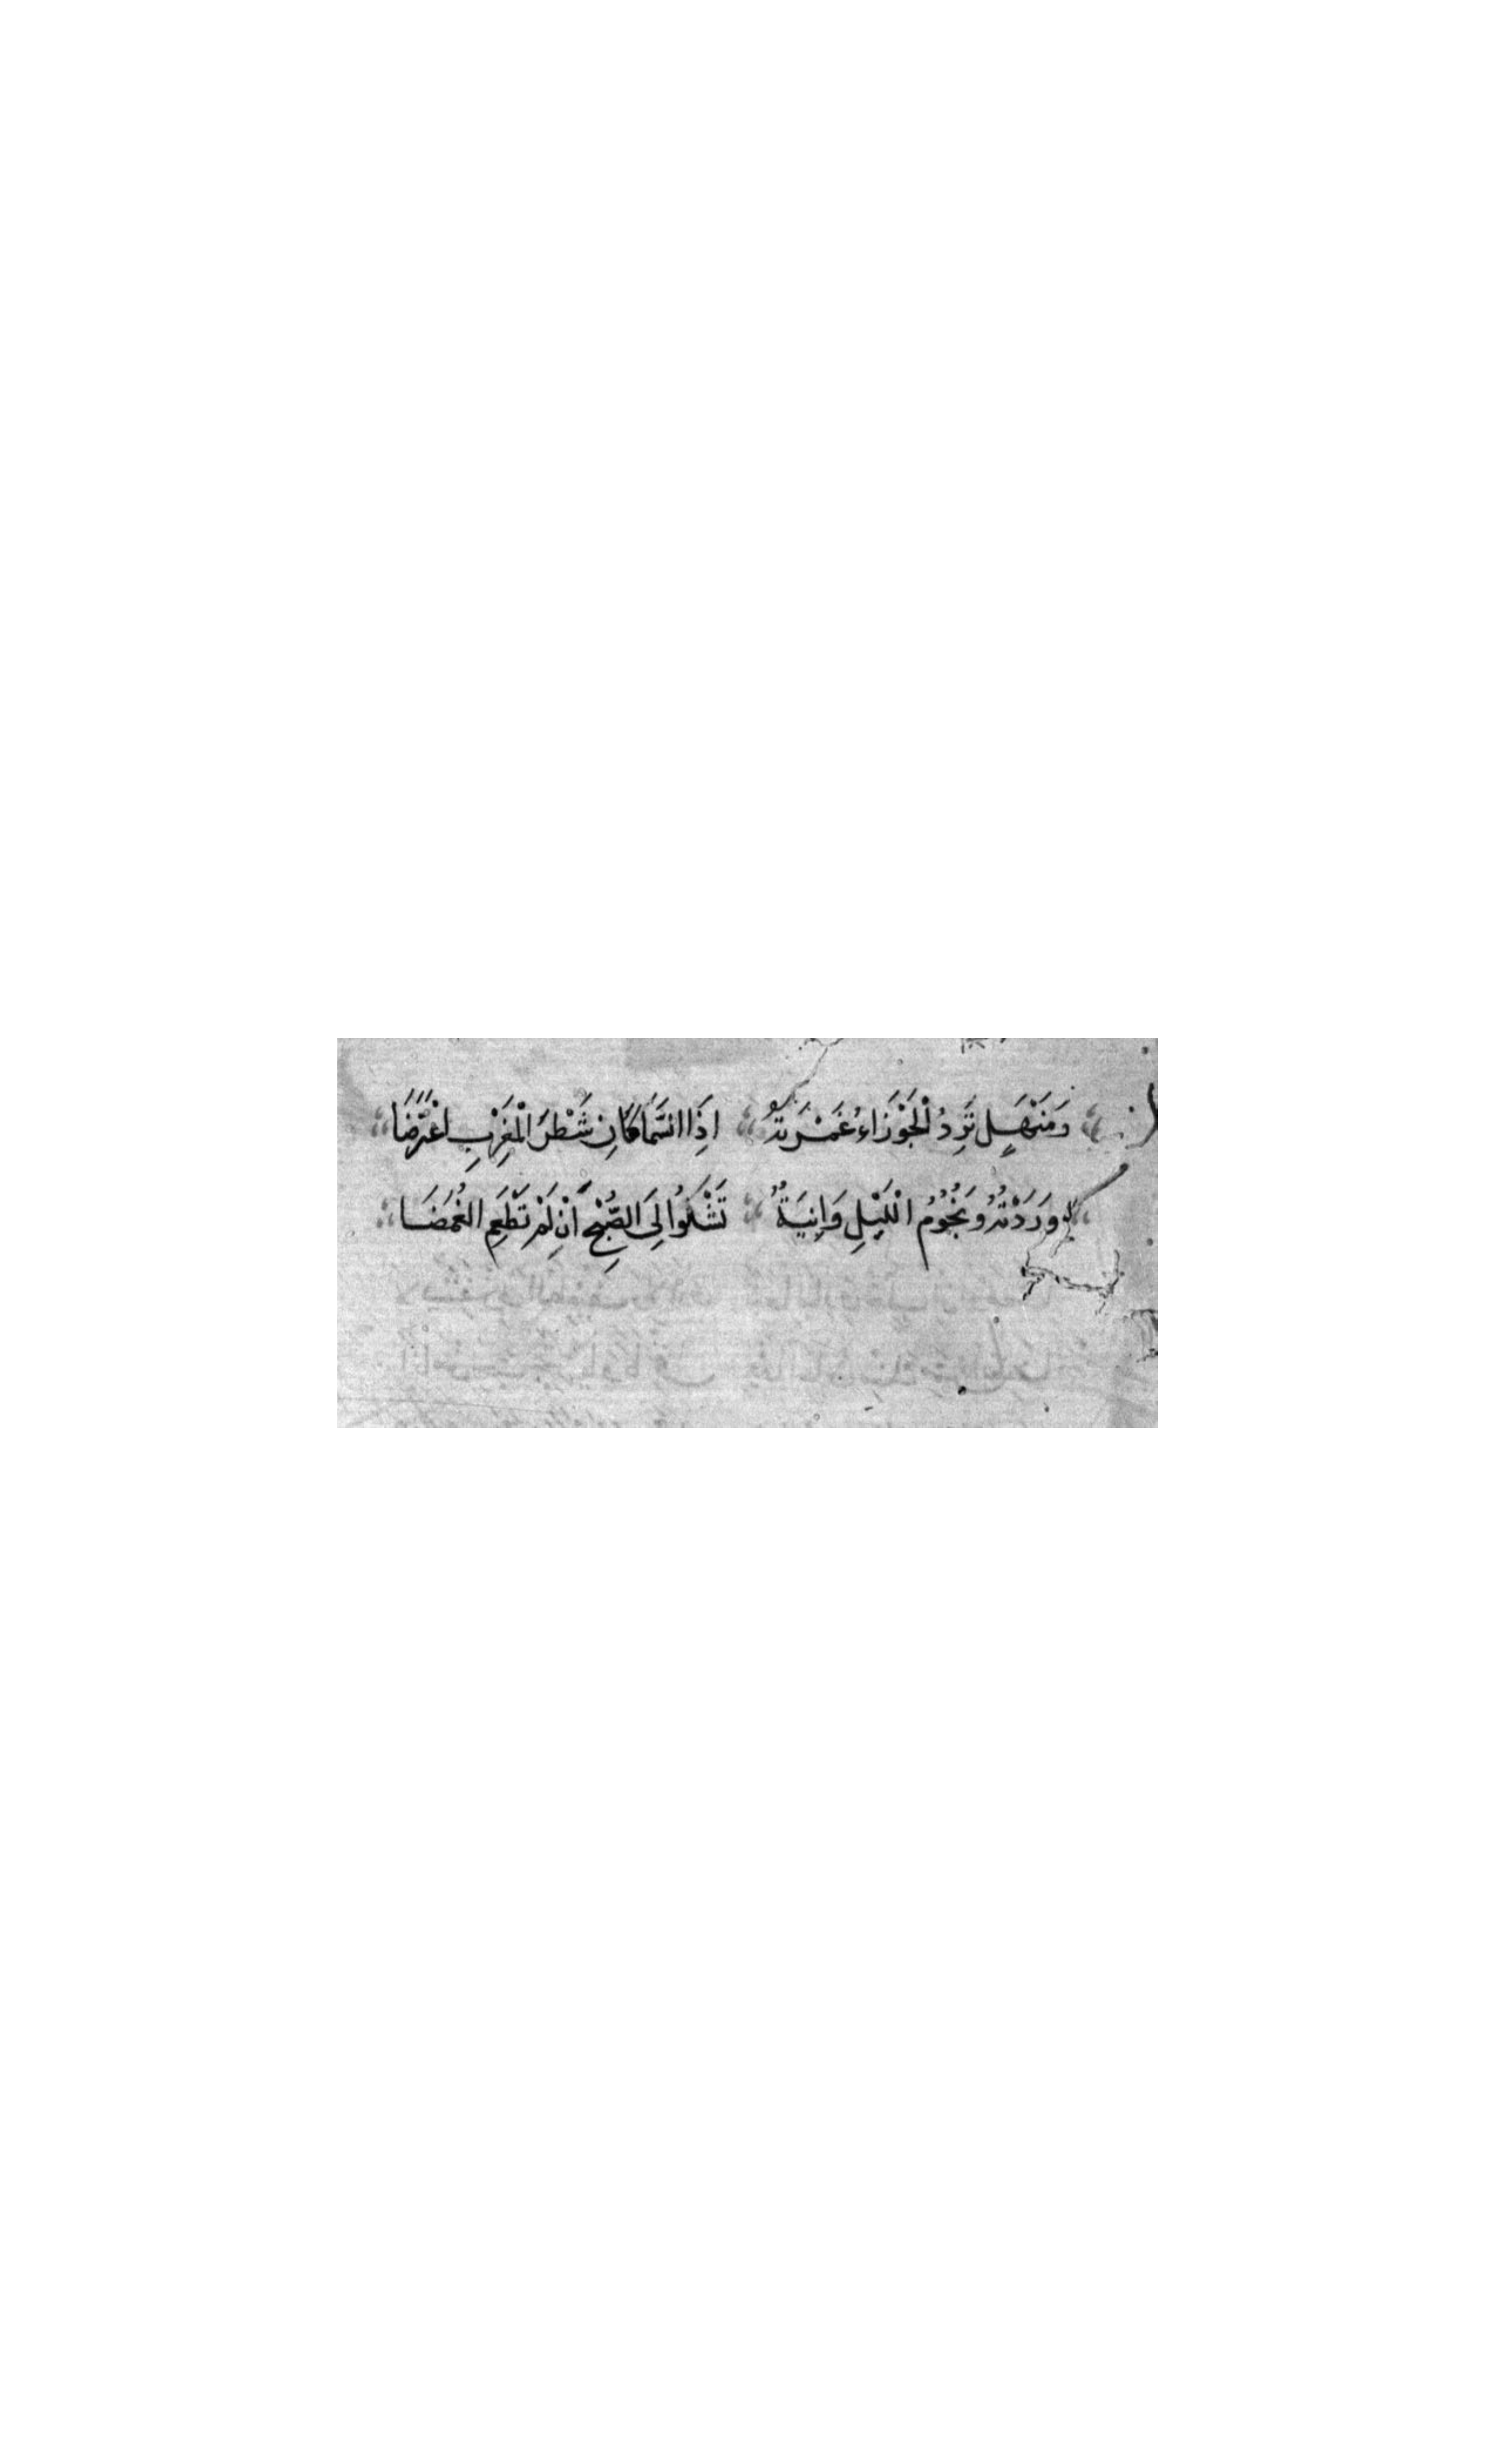 وَمَنْهَلٍ تَرِدُ الْجَوْزَاءُ غَمْرَتَهُ اِذَا السَّمَاكَانِ شَطْرَ الْمَغْرِبِ اعْتَرَضَا
وَرَدْتُهُ وَنُجُوُمُ اللَّيْلِ وَانِيَةٌ تَشْكُوا لِىَ الصُّبْحِ اَنْ لَمْ تَطْعَمِ الغُمَضَا